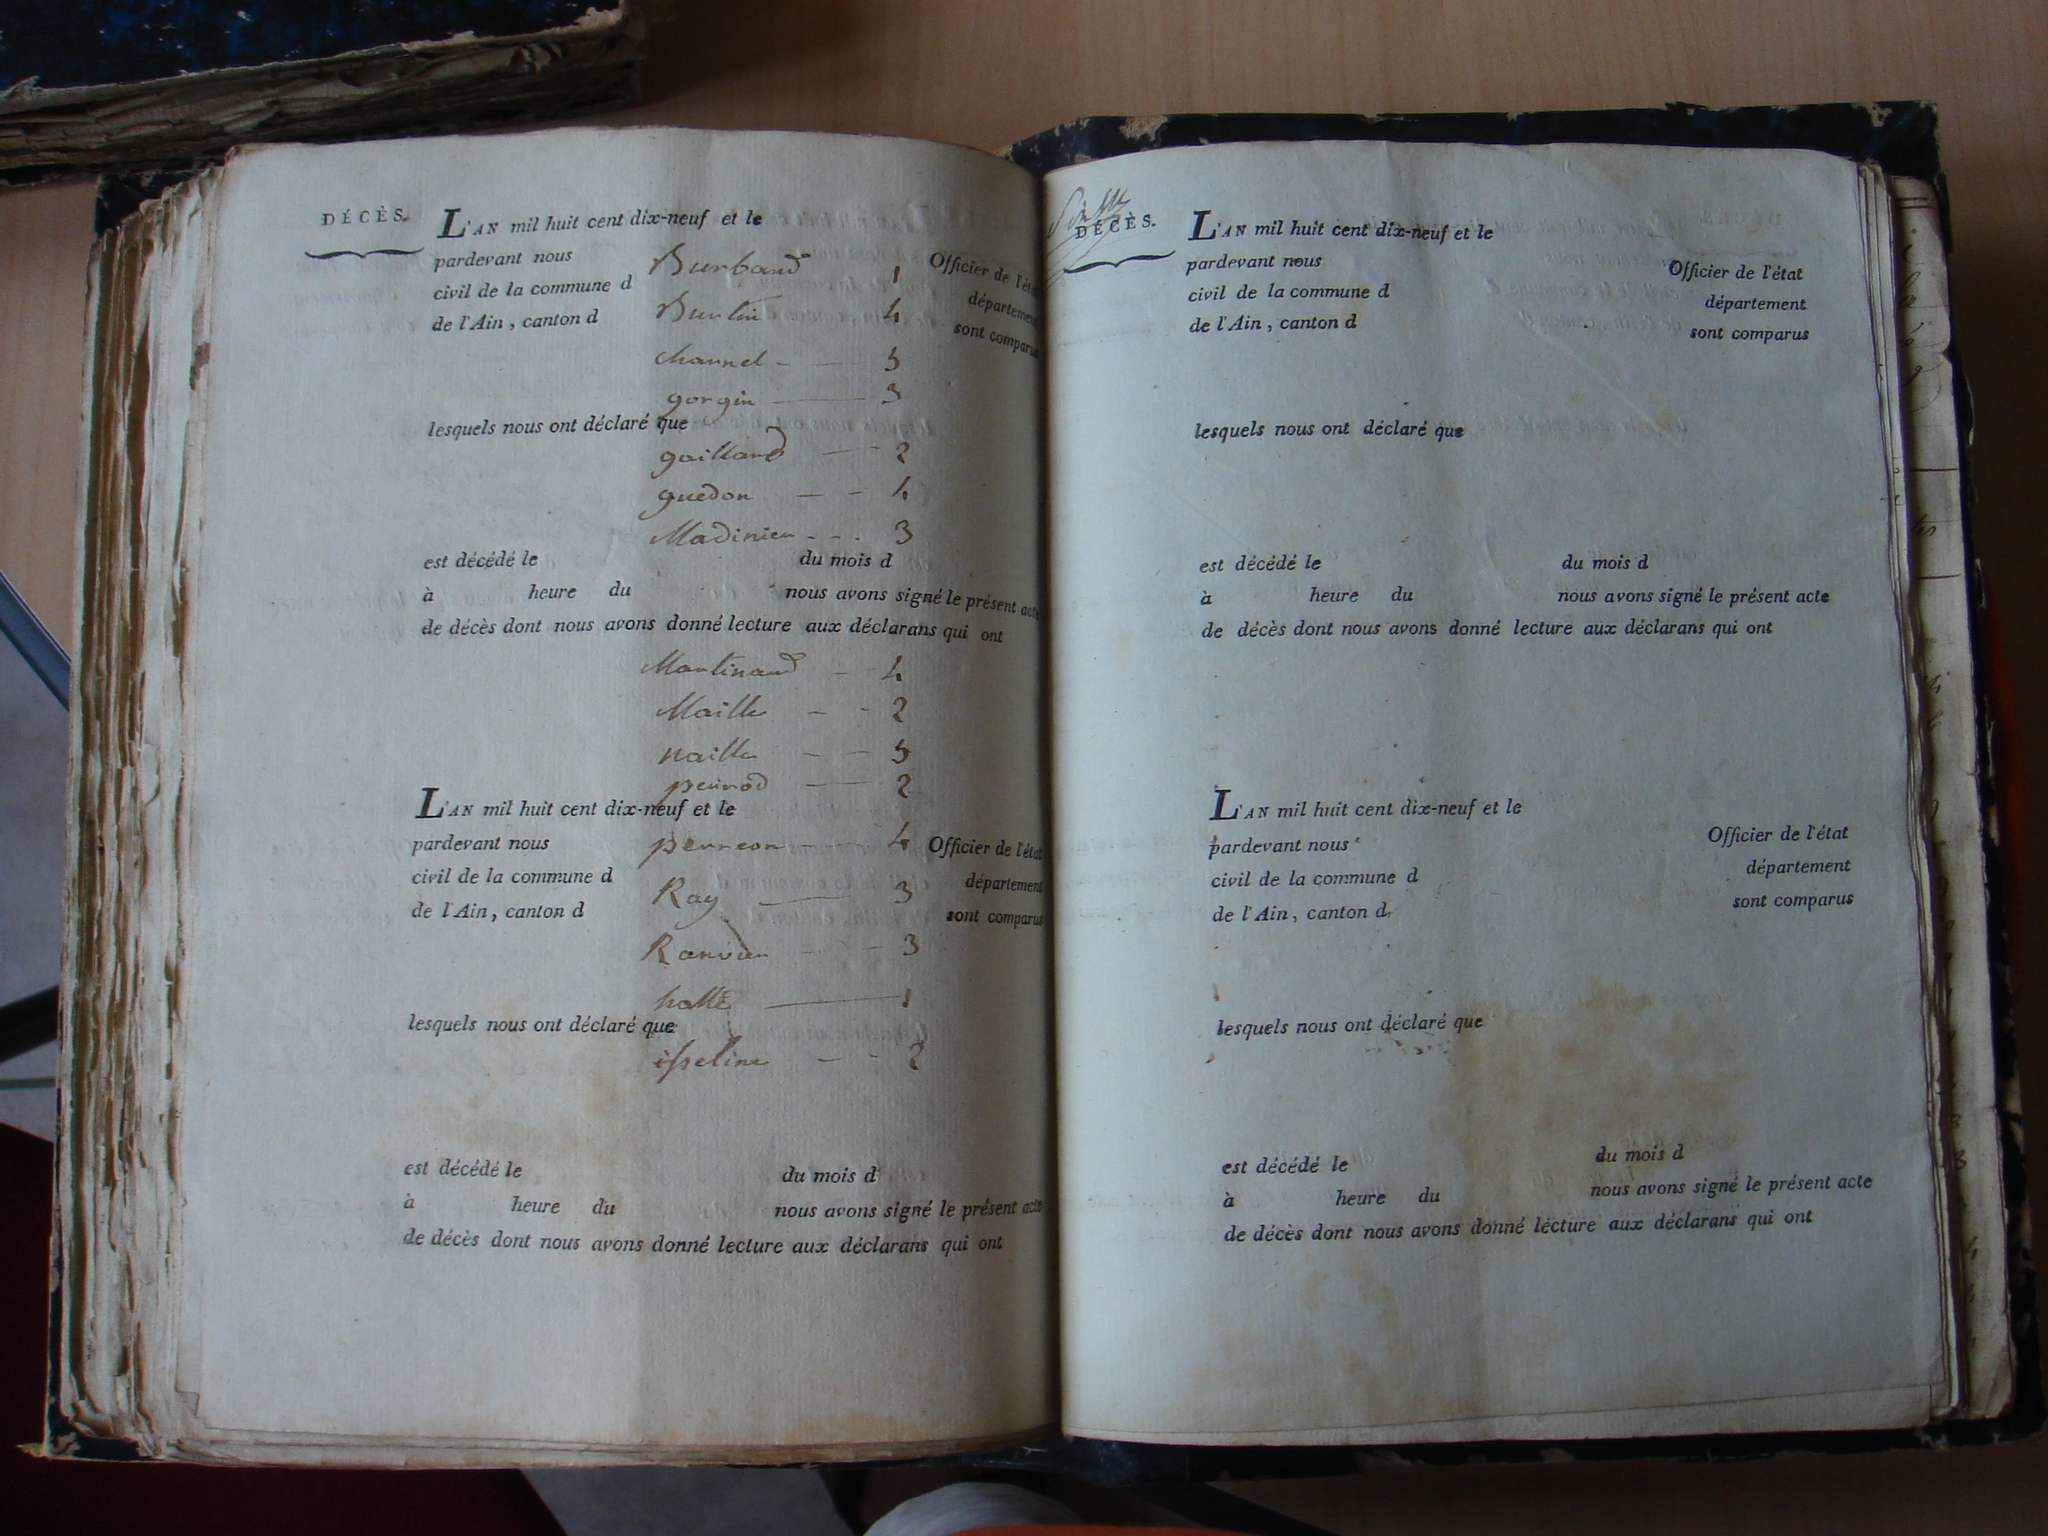 DÉCÈS.
L'AN mil huit cent dix-neuf et le
pardevant nous Burband 1 Officier de l'état
civil de la commune d Burtin 4 département
de l'Ain, canton d sont comparus
charnel - - 3
gorgin - 3
lesquels nous ont déclaré que
gaillard - - 2
guedon - - 4
Madinier - - - 3
est décédé le du mois d
à heure du nous avons signé le présent acte
de décès dont nous avons donné lecture aux déclarans qui ont
Martinand - 4
Maille - - 2
naille - - 3
perrod - 2
L'AN mil huit cent dix-neuf et le
pardevant nous perreon - - 4 Officier de l'état
civil de la commune d Ray - 3 département
de l'Ain, canton d sont comparus
Ranvier - - 3
1
lesquels nous ont déclaré que
isseline - - 2
est décédé le du mois d
à heure du nous avons signé le présent acte
de décès dont nous avons donné lecture aux déclarans qui ont
DÉCÈS.
L'AN mil huit cent dix-neuf et le
pardevant nous Officier de l'état
civil de la commune d département
de l'Ain, canton d sont comparus
lesquels nous ont déclaré que
est décédé le du mois d
à heure du nous avons signé le présent acte
de décès dont nous avons donné lecture aux déclarans qui ont
L'AN mil huit cent dix-neuf et le
pardevant nous Officier de l'état
civil de la commune d département
de l'Ain, canton d sont comparus
lesquels nous ont déclaré que
est décédé le du mois d
à heure du nous avons signé le présent acte
de décès dont nous avons donné lecture aux déclarans qui ont